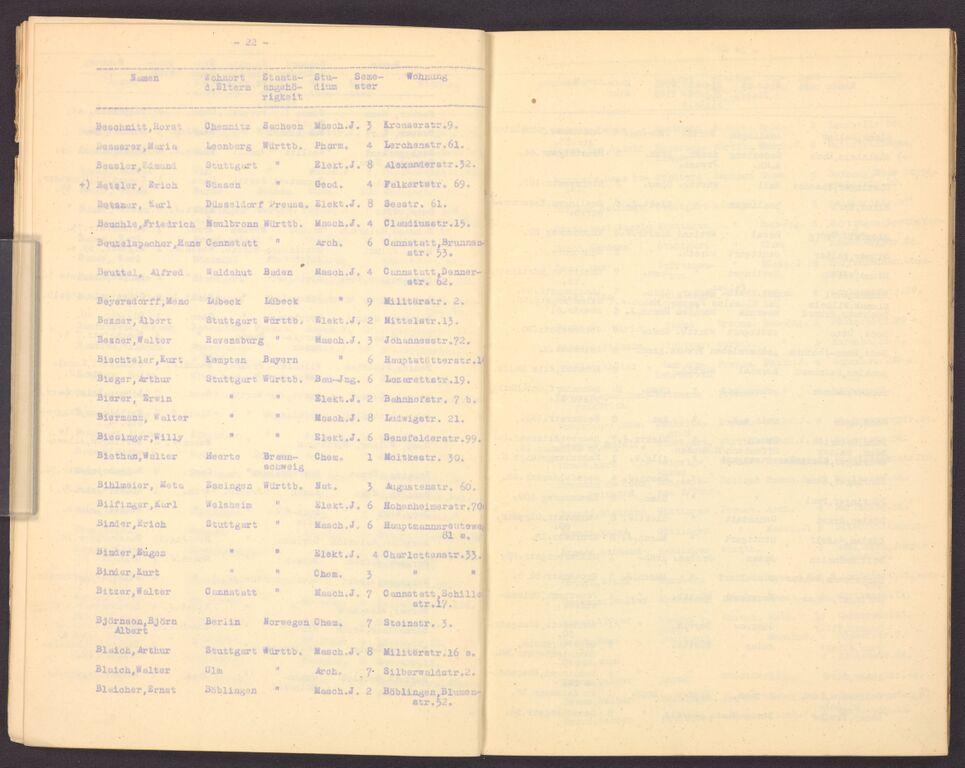 - 22 -
Namen Wohnort Staats- Stu- Seme- Wohnung
d.Eltern angehö- dium ster
rigkeit
Beschnitt,Horst Chemnitz Sachsen Masch.J. 3 Kronenstr.9.
Besserer,Maria Leonberg Württb. Pharm. 4 Lerchenstr.61.
Bessler,Edmund Stuttgart " Elekt.J. 8 Alexanderstr.32.
+) Betzler, Erich Staaen " Geod. 4 Falkertstr. 69.
Betzner, Karl Düsseldorf Preuss. Elekt.J. 8 Seestr. 61.
Beuchle,Friedrich Maulbronn Württb. Masch.J. 4 Claudiusstr.15.
Beutelspacher,Hans Cannstatt " Arch. 6 Cannstatt,Brunnen-
str. 53.
Beuttel, Alfred Waldshut Baden Masch.J. 4 Cannstatt,Denner-
str. 62.
Beyersdorff,Meno Lübeck Lübeck " 9 Militärstr. 2.
Bezner,Albert Stuttgart Württb. Elekt.J. 2 Mittelstr.13.
Bezner,Walter Ravensburg " Masch.J. 3 Johannesstr.72.
Biechteler,Kurt Kempten Bayern " 6 Hauptstätterstr.1
Bieger,Arthur Stuttgart Württb. Bau-Jng. 6 Lazarettstr.19.
Bierer, Erwin " " Elekt.J. 2 Bahnhofstr. 7 b.
Biermann, Walter " " Masch.J. 8 Ludwigstr. 21.
Biesinger,Willy " " Elekt.J. 6 Senefelderstr.99.
Biethan,Walter Heerte Braun- Chem. 1 Moltkestr. 30.
schweig
Bihlmaier, Meta Essingen Württb. Nat. 3 Augustenstr. 60.
Bilfinger,Karl Welzheim " Elekt.J. 6 Hohenheimerstr.70
Binder,Erich Stuttgart " Masch.J. 6 Hauptmannsreutewe
81 a.
Binder,Eugen " " Elekt.J. 4 Charlottenstr.33.
Binder,Kurt " " Chem. 3 " "
Bitzer,Walter Cannstatt " Masch.J. 7 Cannstatt,Schille
str.17.
Björnson,Björn Berlin Norwegen Chem. 7 Steinstr. 3.
Albert
Blaich,Arthur Stuttgart Württb. Masch.J. 8 Militärstr.16 a.
Blaich,Walter Ulm " Arch. 7 Silberwaldstr.2.
Blaicher,Ernst Böblingen " Masch.J. 2 Böblingen,Blumen-
str.52.